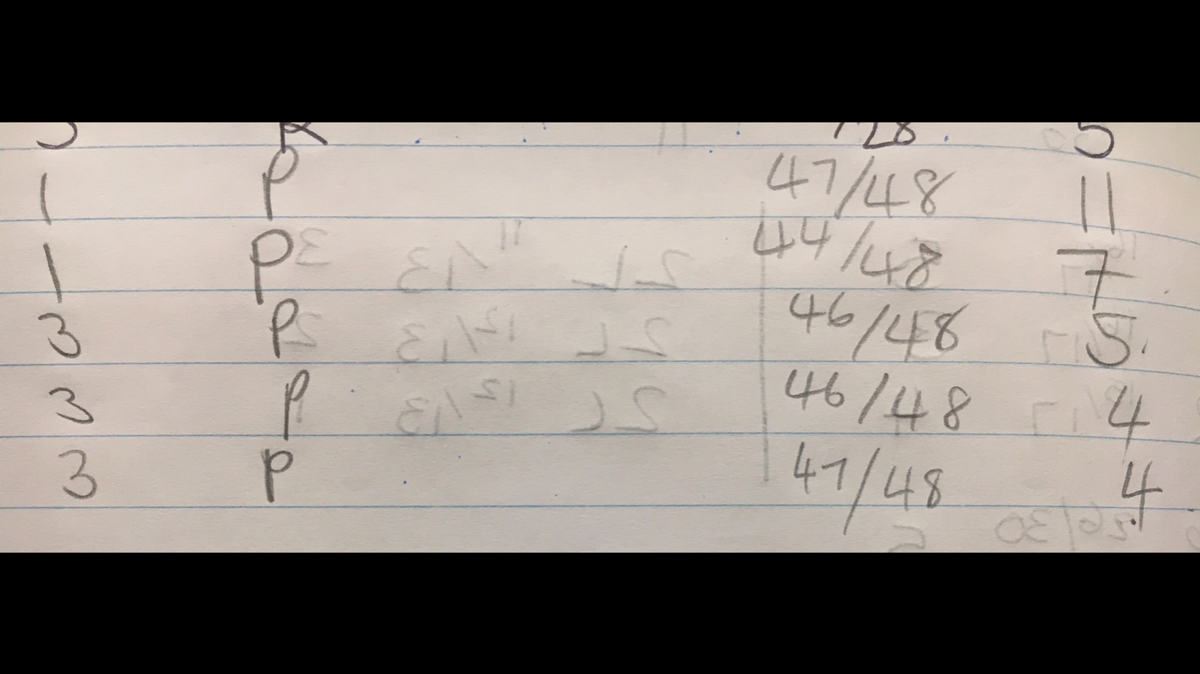 1 P 47/48 11
1 P 44/48 7
3 P 46/48 5.
3 P 46/48 4
3 P 47/48 4